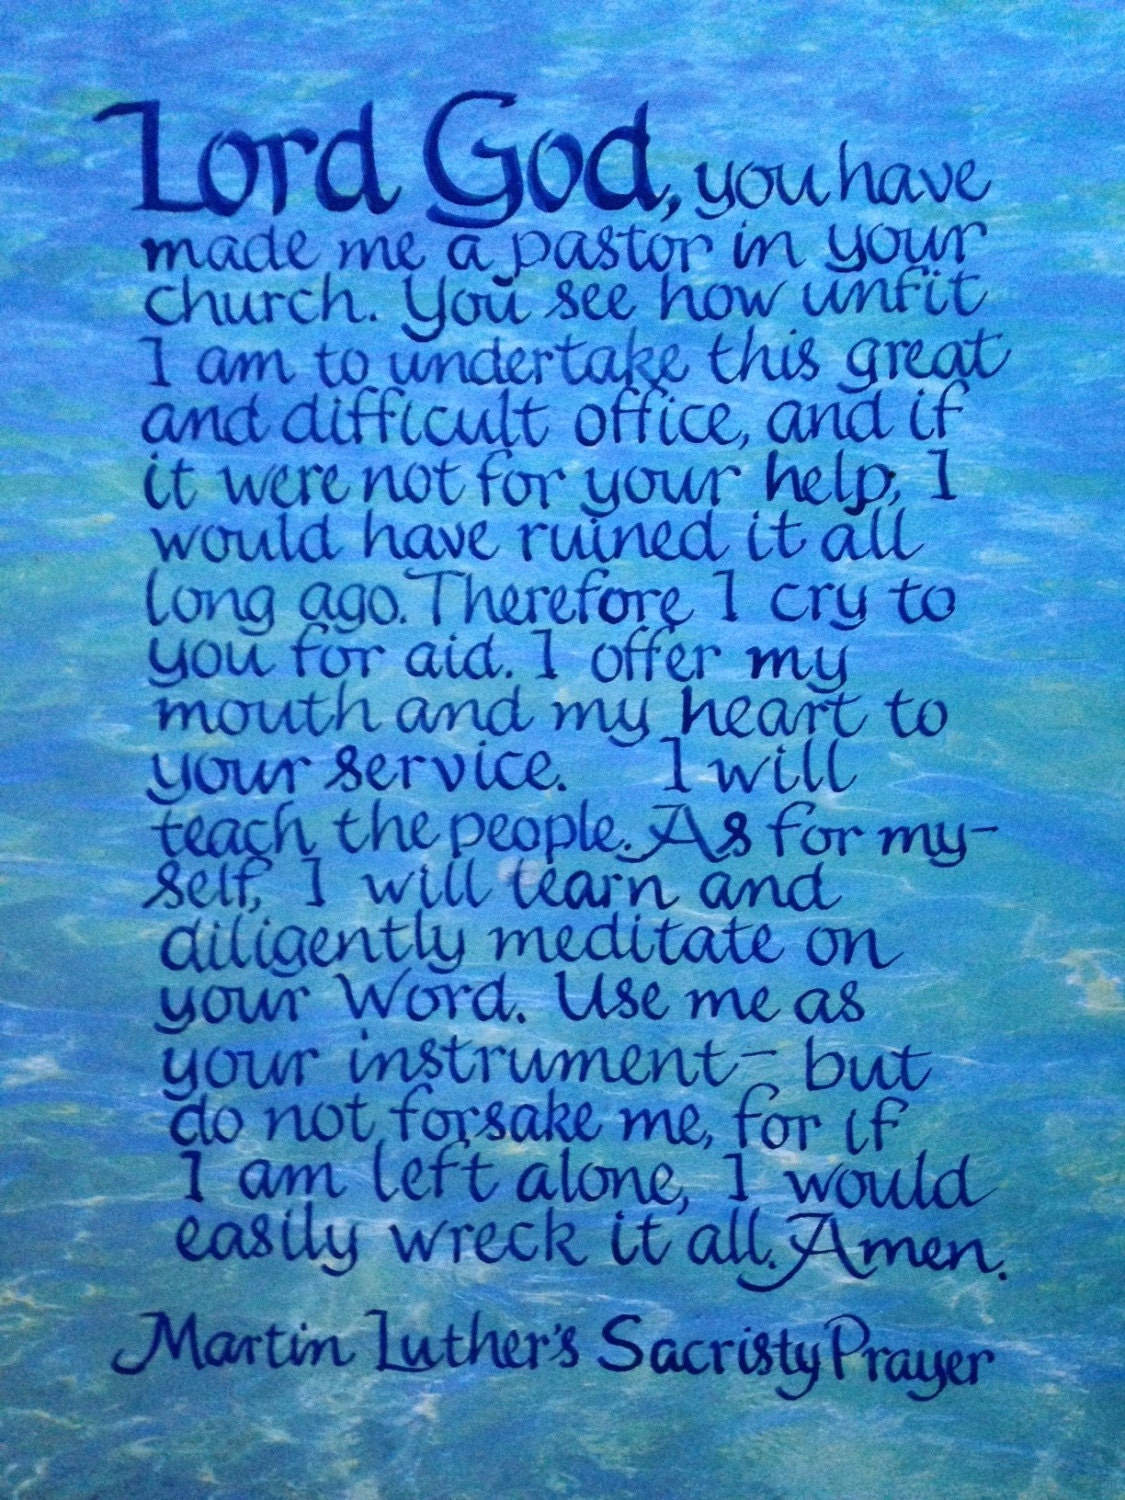 Lord God, you have
made me a pastor in your
church. You see how unfit
I am to undertake this great
and difficult office, and if
it were not for your help, I
would have ruined it all
long ago. Therefore I cry to
you for aid. I offer my
mouth and my heart to
your service. I will
teach the people. As for my-
self, I will learn and
diligently meditate on
your Word. Use me as
your instrument- but
do not forsake me, for if
I am left alone, I would
easily wreck it all. Amen.
Martin Luther's Sacristy Prayer